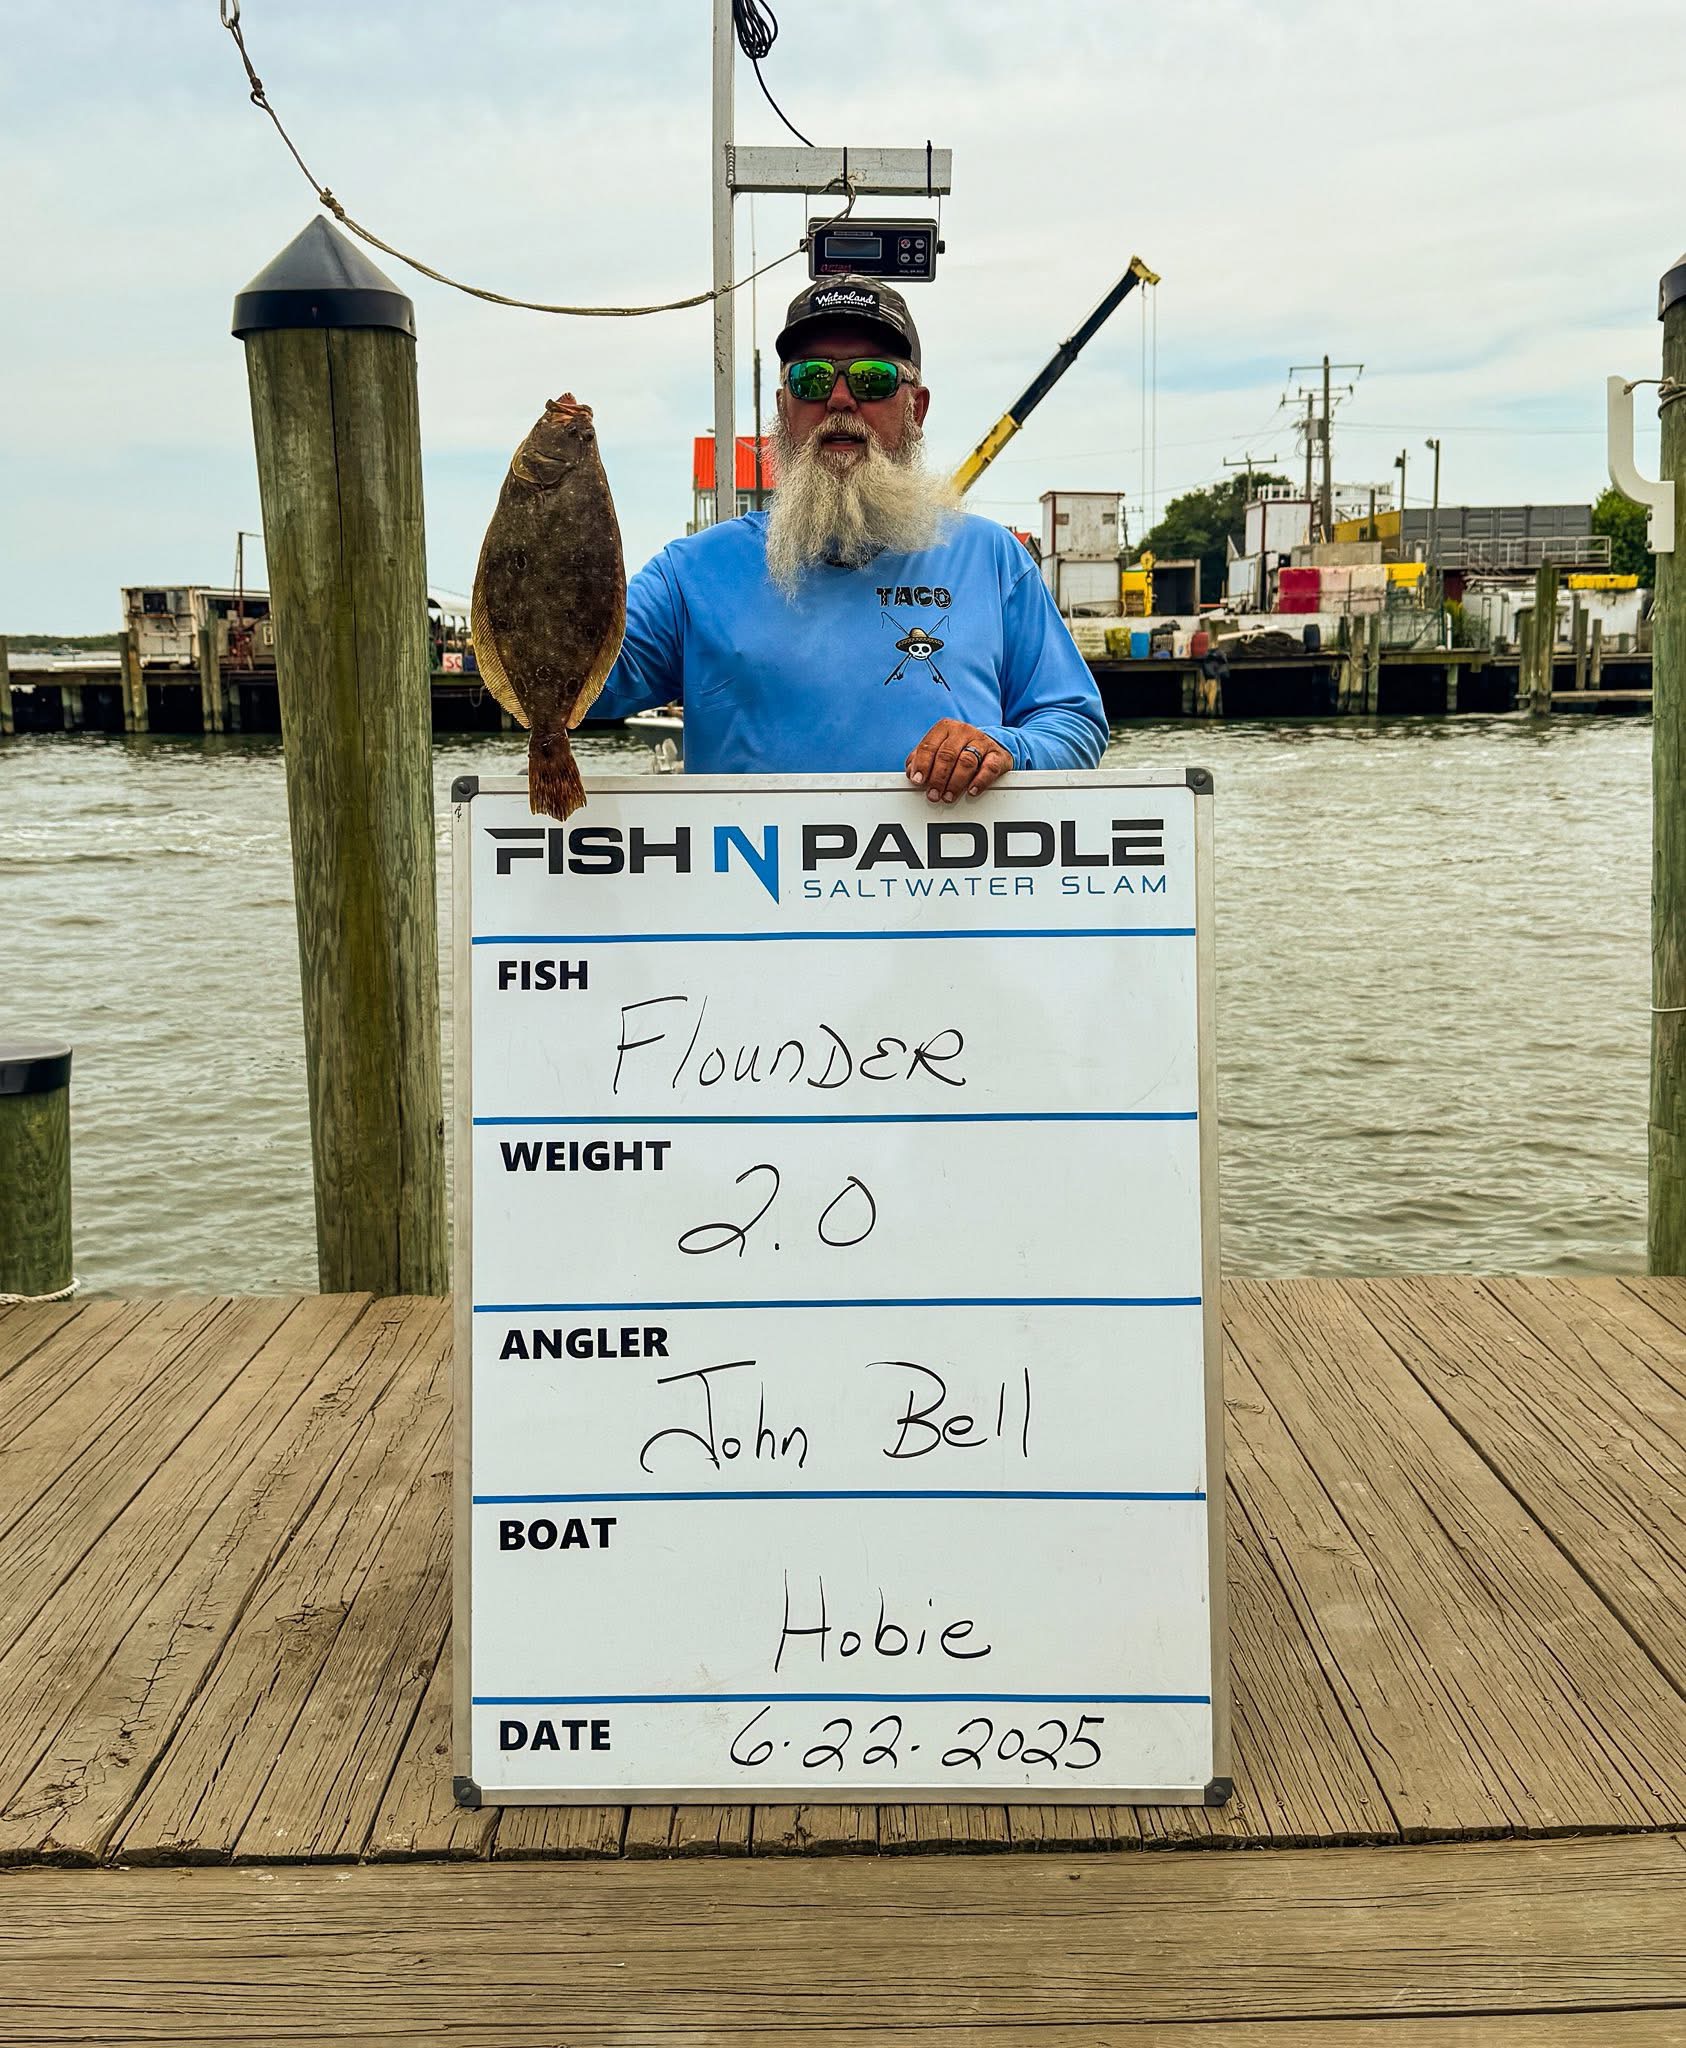 Waterland
TACO
FISH N PADDLE
SALTWATER SLAM
FISH
FlounDER
WEIGHT
2.0
ANGLER
John Bell
BOAT
Hobie
DATE
6.22.2025